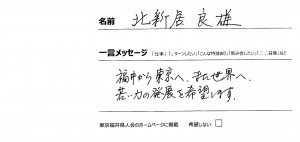 名前 北新居良雄
一言メッセージ 「仕事」「Uターンしたい」「こんな特技有り」「飲み会したい」「○○自慢」など
福井から東京へ、また世界へ、
若い力の発展を希望します。
東京福井県人会のホームページに掲載 希望しない □